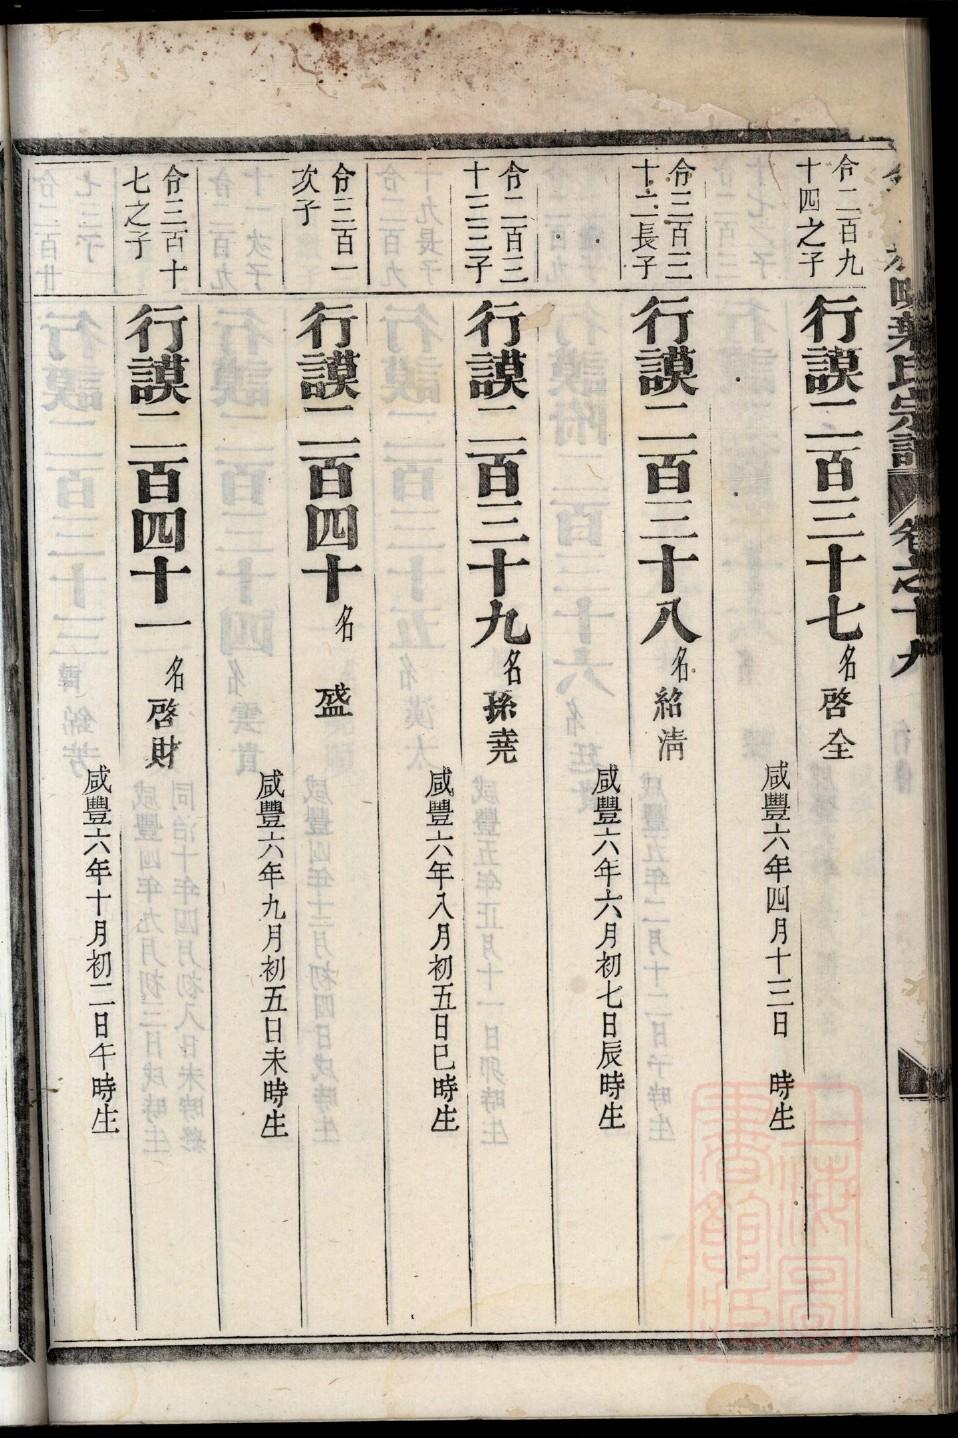 葉氏宗譜 卷之十九
佾二百九
十四之子
行謨二百三十七 名啓全
咸豐六年四月十三日 時生
佾三百三
十二長子
行謨二百三十八 名紹淸
咸豐六年六月初七日辰時生
佾二百三
十三三子
行謨二百三十九 名孫堯
咸豐六年八月初五日巳時生
佾三百一
次子
行謨二百四十 名 盛
咸豐六年九月初五日未時生
佾三百十
七之子
行謨二百四十一 名啓財
咸豐六年十月初二日午時生
上海圖
書館藏